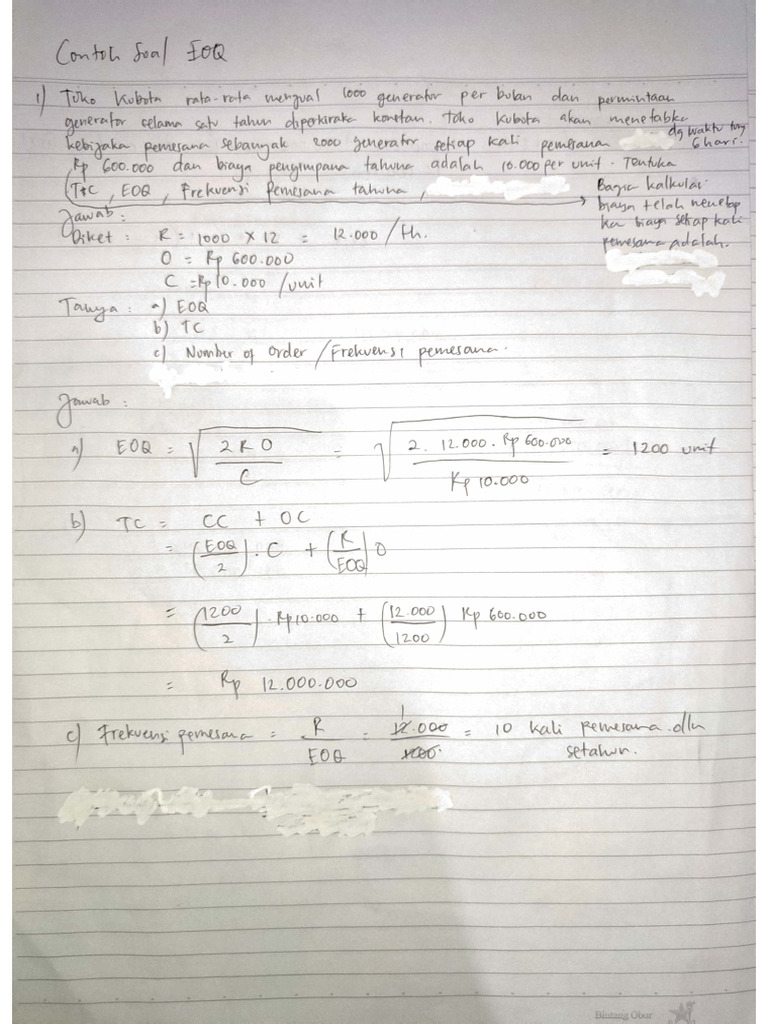 Contoh Soal EOQ
1) Toko Kubota rata-rata menjual 1000 generator per bulan dan permintaan
generator selama satu tahun diperkiraka konstan. Toko Kubota akan menetabka
kebijaka pemesana sebanyak 2000 generator setiap kali pemesana dg waktu tung
6 hari.
Rp 600.000 dan biaya penyimpana tahuna adalah 10.000 per unit. Tentuka
TIC, EOQ, Frekuensi Pemesana tahuna,
Bagia kalkulasi
biaya telah menetap
ka biaya setiap kali
pemesana adalah.
Jawab :
Diket : R = 1000 × 12 = 12.000 /th.
O = Rp 600.000
C = Rp 10.000 /unit
Tanya : a) EOQ
b) TC
c) Number of Order / Frekuensi pemesana.
Jawab :
a) EOQ = √ 2 R O / C = √ 2. 12.000 . Rp 600.000 / Rp 10.000 = 1200 unit
b) TC = CC + OC
= (EOQ / 2) . C + (R / EOQ) O
= (1200 / 2) . Rp 10.000 + (12.000 / 1200) Rp 600.000
= Rp 12.000.000
c) Frekuensi pemesana = R / EOQ = 12.000 / 1200 = 10 kali pemesana dlm
setahun.
Bintang Obor